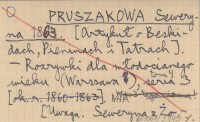 PRUSZAKOWA Sewery-
na 1863 [Artykuł o Beski-
dach, Pieninach i Tatrach].
— Rozrywki dla młodocianego
wieku (Warszawa), seria
tomy
[ok. r. 1860-1863].
[Uwaga. Seweryna z